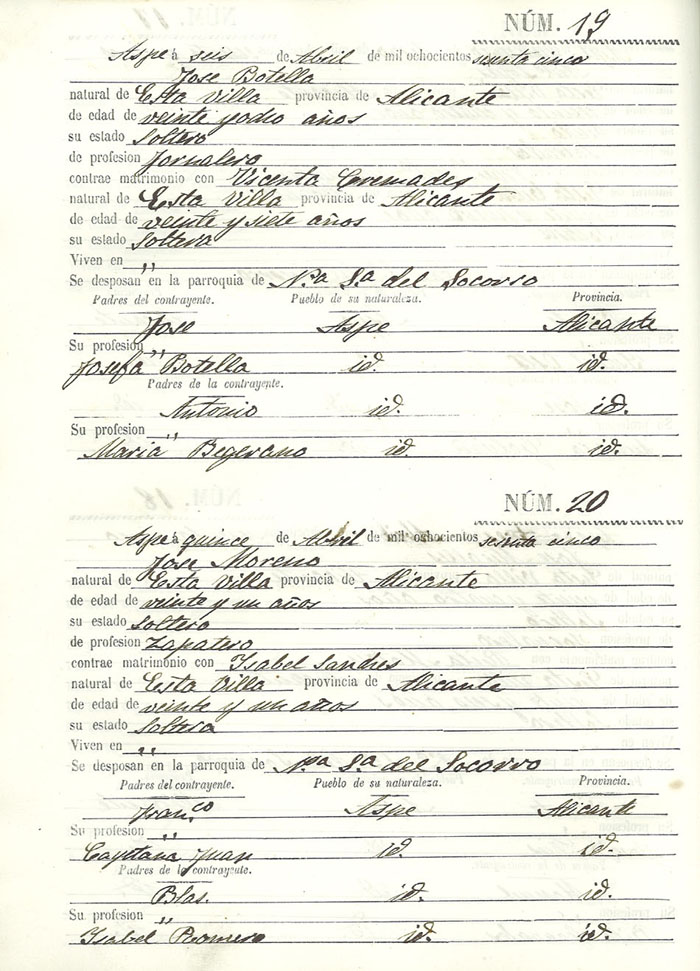 NÚM. 19
Aspe á seis de Abril de mil ochocientos sesenta cinco
Jose Botella
natural de Esta Villa provincia de Alicante
de edad de veinte y ocho años
su estado Soltero
de profesion Jornalero
contrae matrimonio con Vicenta Cremades
natural de Esta Villa provincia de Alicante
de edad de veinte y siete años
su estado Soltera
Viven en "
Se desposan en la parroquia de Nª Sª del Socorro
Padres del contrayente. Pueblo de su naturaleza. Provincia.
Jose Aspe Alicante
Su profesion "
Josefa Botella id. id.
Padres de la contrayente.
Antonio id. id.
Su profesion "
Maria Begerano id. id.
NÚM. 20
Aspe á quince de Abril de mil ochocientos sesenta cinco
Jose Moreno
natural de Esta Villa provincia de Alicante
de edad de veinte y un años
su estado Soltero
de profesion Zapatero
contrae matrimonio con Isabel
natural de Esta Villa provincia de Alicante
de edad de veinte y un años
su estado Soltera
Viven en "
Se desposan en la parroquia de Nª Sª del Socorro
Padres del contrayente. Pueblo de su naturaleza. Provincia.
Franco Aspe Alicante
Su profesion "
Cayetana Juan id. id.
Padres de la contrayente.
Blas. id. id.
Su profesion "
Isabel Romero id. id.